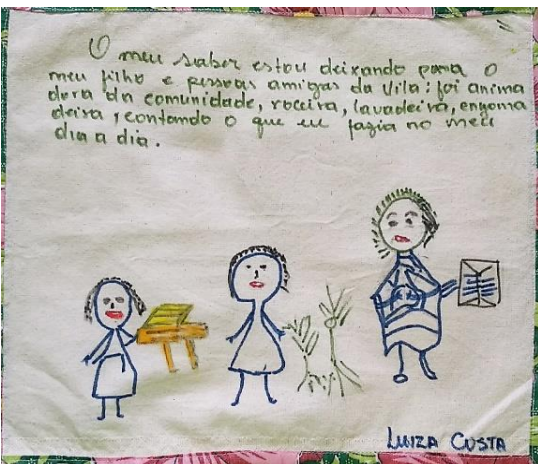 O meu saber estou deixando para o
meu filho e pessoas amigas da Vila: foi anima
dora da comunidade, roceira, lavadeira, engoma
deira, contando o que eu fazia no meu
dia a dia.
LUIZA COSTA